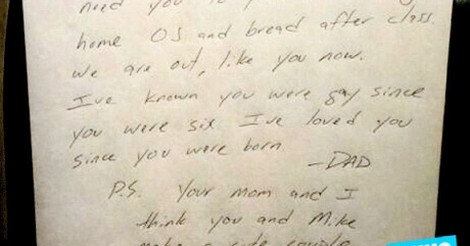 need you to
home OJ and bread after class.
We are out, like you now.
I've known you were gay since
you were six. I've loved you
since you were born
-DAD
P.S. Your mom and I
think you and Mike
make a cute couple